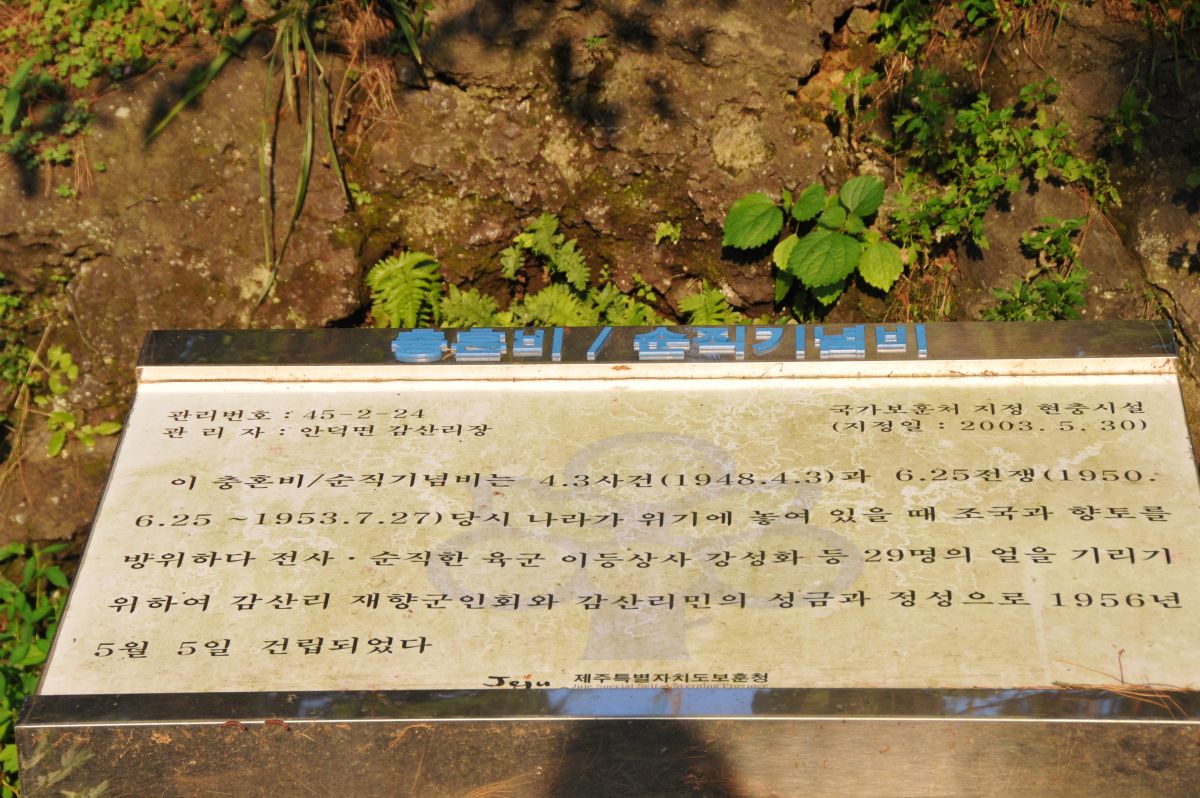 충혼비 / 순직기념비
관리번호 : 45-2-24
관 리 자 : 안덕면 감산리장
국가보훈처 지정 현충시설
(지정일 : 2003. 5. 30)
이 충혼비/순직기념비는 4.3사건(1948.4.3)과 6.25전쟁(1950.
6.25 ~1953.7.27)당시 나라가 위기에 놓여 있을 때 조국과 향토를
방위하다 전사·순직한 육군 이등상사 강성화 등 29명의 얼을 기리기
위하여 감산리 재향군인회와 감산리민의 성금과 정성으로 1956년
5월 5일 건립되었다
Jeju 제주특별자치도보훈청
Jeju Special Self-Governing Province